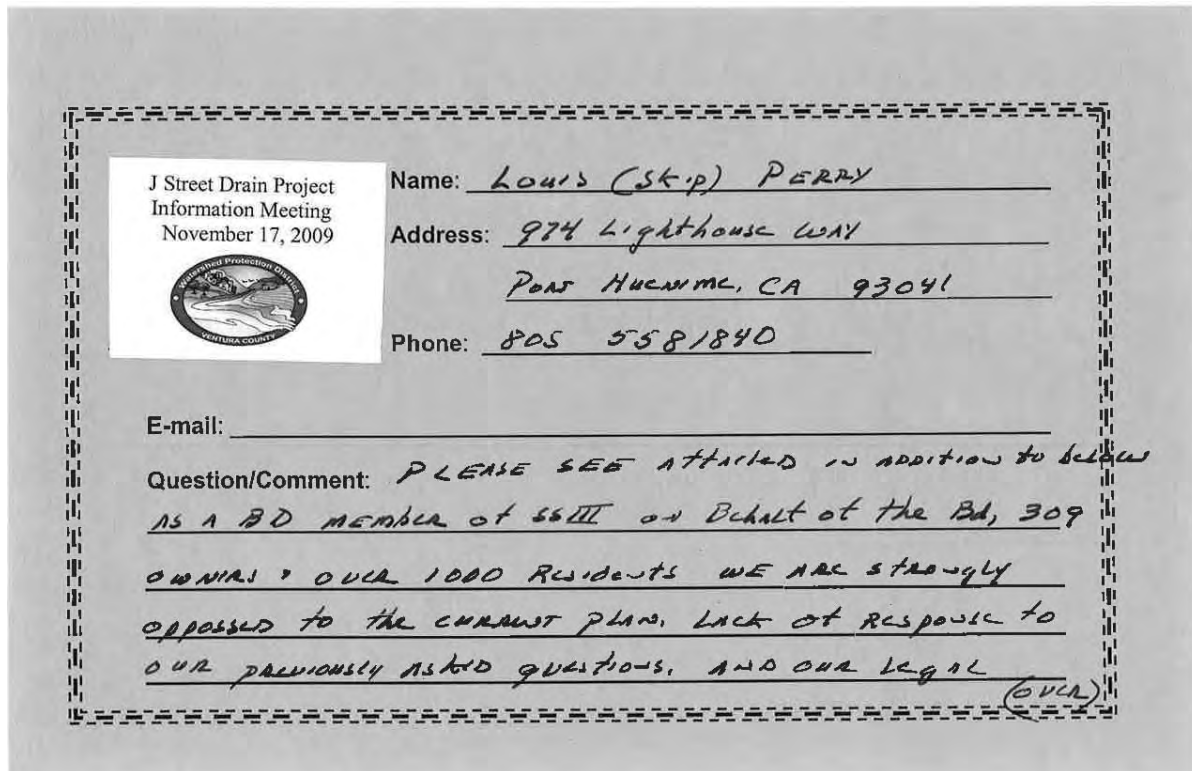 J Street Drain Project
Information Meeting
November 17, 2009
Watershed Protection District
VENTURA COUNTY
Name: Louis (Skip) PERRY
Address: 974 Lighthouse WAY
PORT HUENIME, CA 93041
Phone: 805 5581840
E-mail:
Question/Comment: PLEASE SEE AttACHED in ADDITION to below
AS A BD MEMBER of SSIII on Behalf of the Bd, 309
OWNERS & OVER 1000 Residents WE ARE strongly
OPPOSSED to the CURRENT PLAN. LACK of Response to
OUR PREVIOUSLY ASKED questions. AND OUR LEGAL
(OVER)